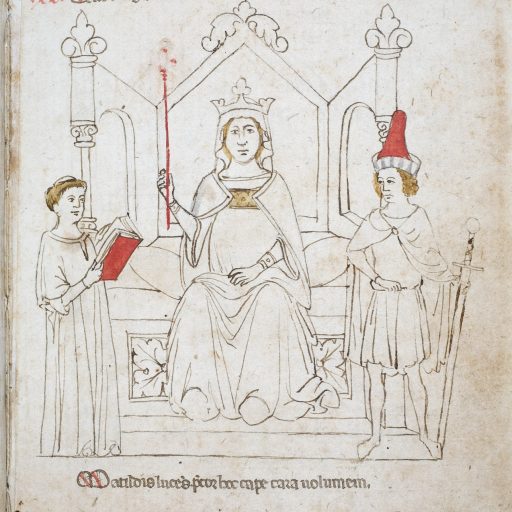 Matildis lucēs p̄cor hoc cape cara uolumem.